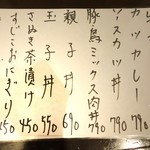 カツカレー 790
ソースカツ丼 790
豚鳥ミックス肉丼 790
親子丼 690
玉子丼 550
さぬき茶漬け 450
すじこおにぎり 250